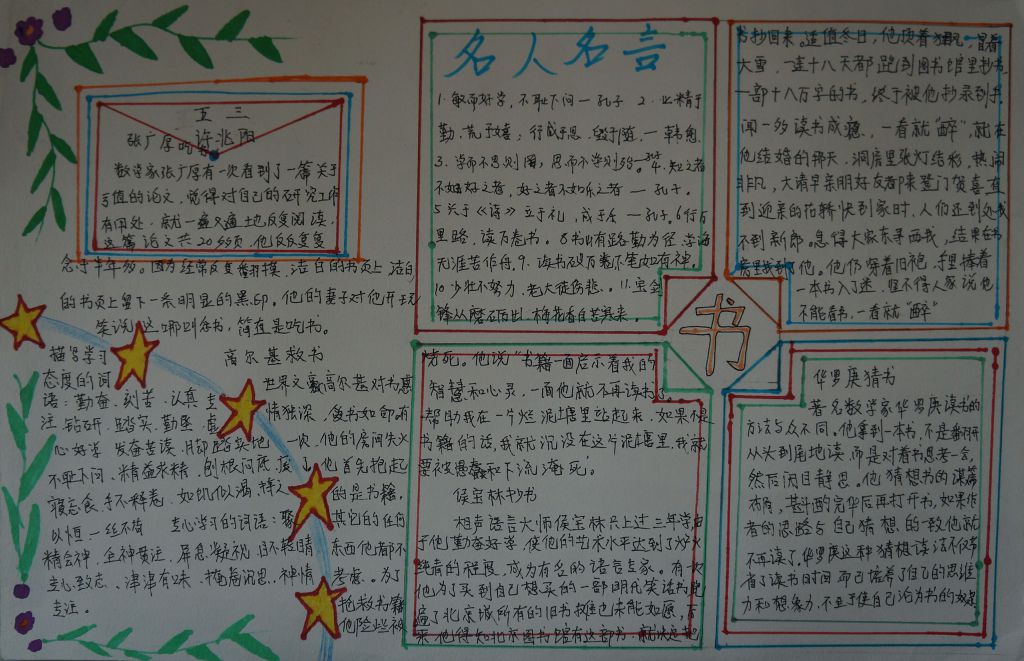 五 三
许兆阳
张广厚吃书
数学家张广厚有一次看到了一篇关于
亏值的论文，觉得对自己的研究工作
有用处，就一遍又遍土也反复阅读，
这篇论文共20多页，他反反复复
念了半年多。因为经常反复翻摸，洁白的书页上，洁白
的书页上留下一条明显的黑印。他的妻子对他开玩
笑说，这哪叫念书，简直是吃书。
描写学习
态度的词
语：勤奋、刻苦、认真、专
注、钻研、踏实、勤恳、虚
心好学、发奋苦读、脚踏实地、
不耻下问、精益求精、刨根问底、废
寝忘食、手不释卷、如饥似渴、持之
以恒、一丝不苟 专心学习的词语：聚
精会神、全神贯注、屏息凝视、目不转睛、
专心致志、津津有味、掩卷沉思、神情
专注。
高尔基救书
世界文豪高尔基对书感
情独深，爱书如命，有
一次，他的房间失火
了，他首先抱起
的是书籍，
其它的任何
东西他都不
考虑。为了
抢救书籍
他险些被
烧死。他说“书籍一面启示着我的
智慧和心灵，一面他就不再读书了，
帮助我在一个烂泥土塘里站起来，如果不是
书籍的话，我就沉没在这片泥土塘里，我就
要被愚蠢和下流淹死。
侯宝林抄书
相声语言大师侯宝林只上过三年学，由
于他勤奋好学，使他的艺术水平达到了炉火
纯青的程度，成为有名的语言专家。有一次
他为了买到自己想买的一部明代笑话书，跑
遍了北京城所有的旧书摊也未能如愿，后
来，他得知北京图书馆有这部书，就决定把
书抄回来。适值冬日，他顶着狂风，冒着
大雪，一连十八天都跑到图书馆里抄书，
一部十八万字的书，终于被他抄录到手。
闻一多读书成瘾，一看就“醉”，就在
他结婚的那天，洞房里张灯结彩，热闹
非凡，大清早亲朋好友都来登门贺喜，直
到迎亲的花轿快到家时，人们还到处找
不到新郎。急得大家东寻西找，结果在书
房里找到了他。他仍穿着旧袍，手里捧着
一本书入了迷，怪不得人家说他
不能看书，一看就“醉”
名人名言
1.敏而好学，不耻下问—孔子 2.业精于
勤，荒于嬉；行成于思，毁于随。—韩愈
3.学而不思则罔，思而不学则殆—孔子4.知之者
不如好之者，好之者不如乐之者—孔子。
5兴于《诗》立于礼，成于乐—孔子。6行万
里路，读万卷书。8书山有路勤为径，学海
无涯苦作舟，9.读书破万卷下笔如有神，
10少壮不努力，老大徒伤悲。11.宝剑
锋从磨砺出，梅花香自苦寒来。
书
华罗庚猜书
著名数学家华罗庚读书的
方法与众不同。他拿到一本书，不是翻开
从头到尾地读，而是对着书思考一会，
然后闭目静思。他猜想书的谋篇
布局，斟酌完毕后再打开书，如果作
者的思路与自己猜想的一致他就
不再读了，华罗庚这种猜想读法不仅节
省了读书时间，而已培养了自己的思维
力和想象力，不至于使自己沦为书的奴隶